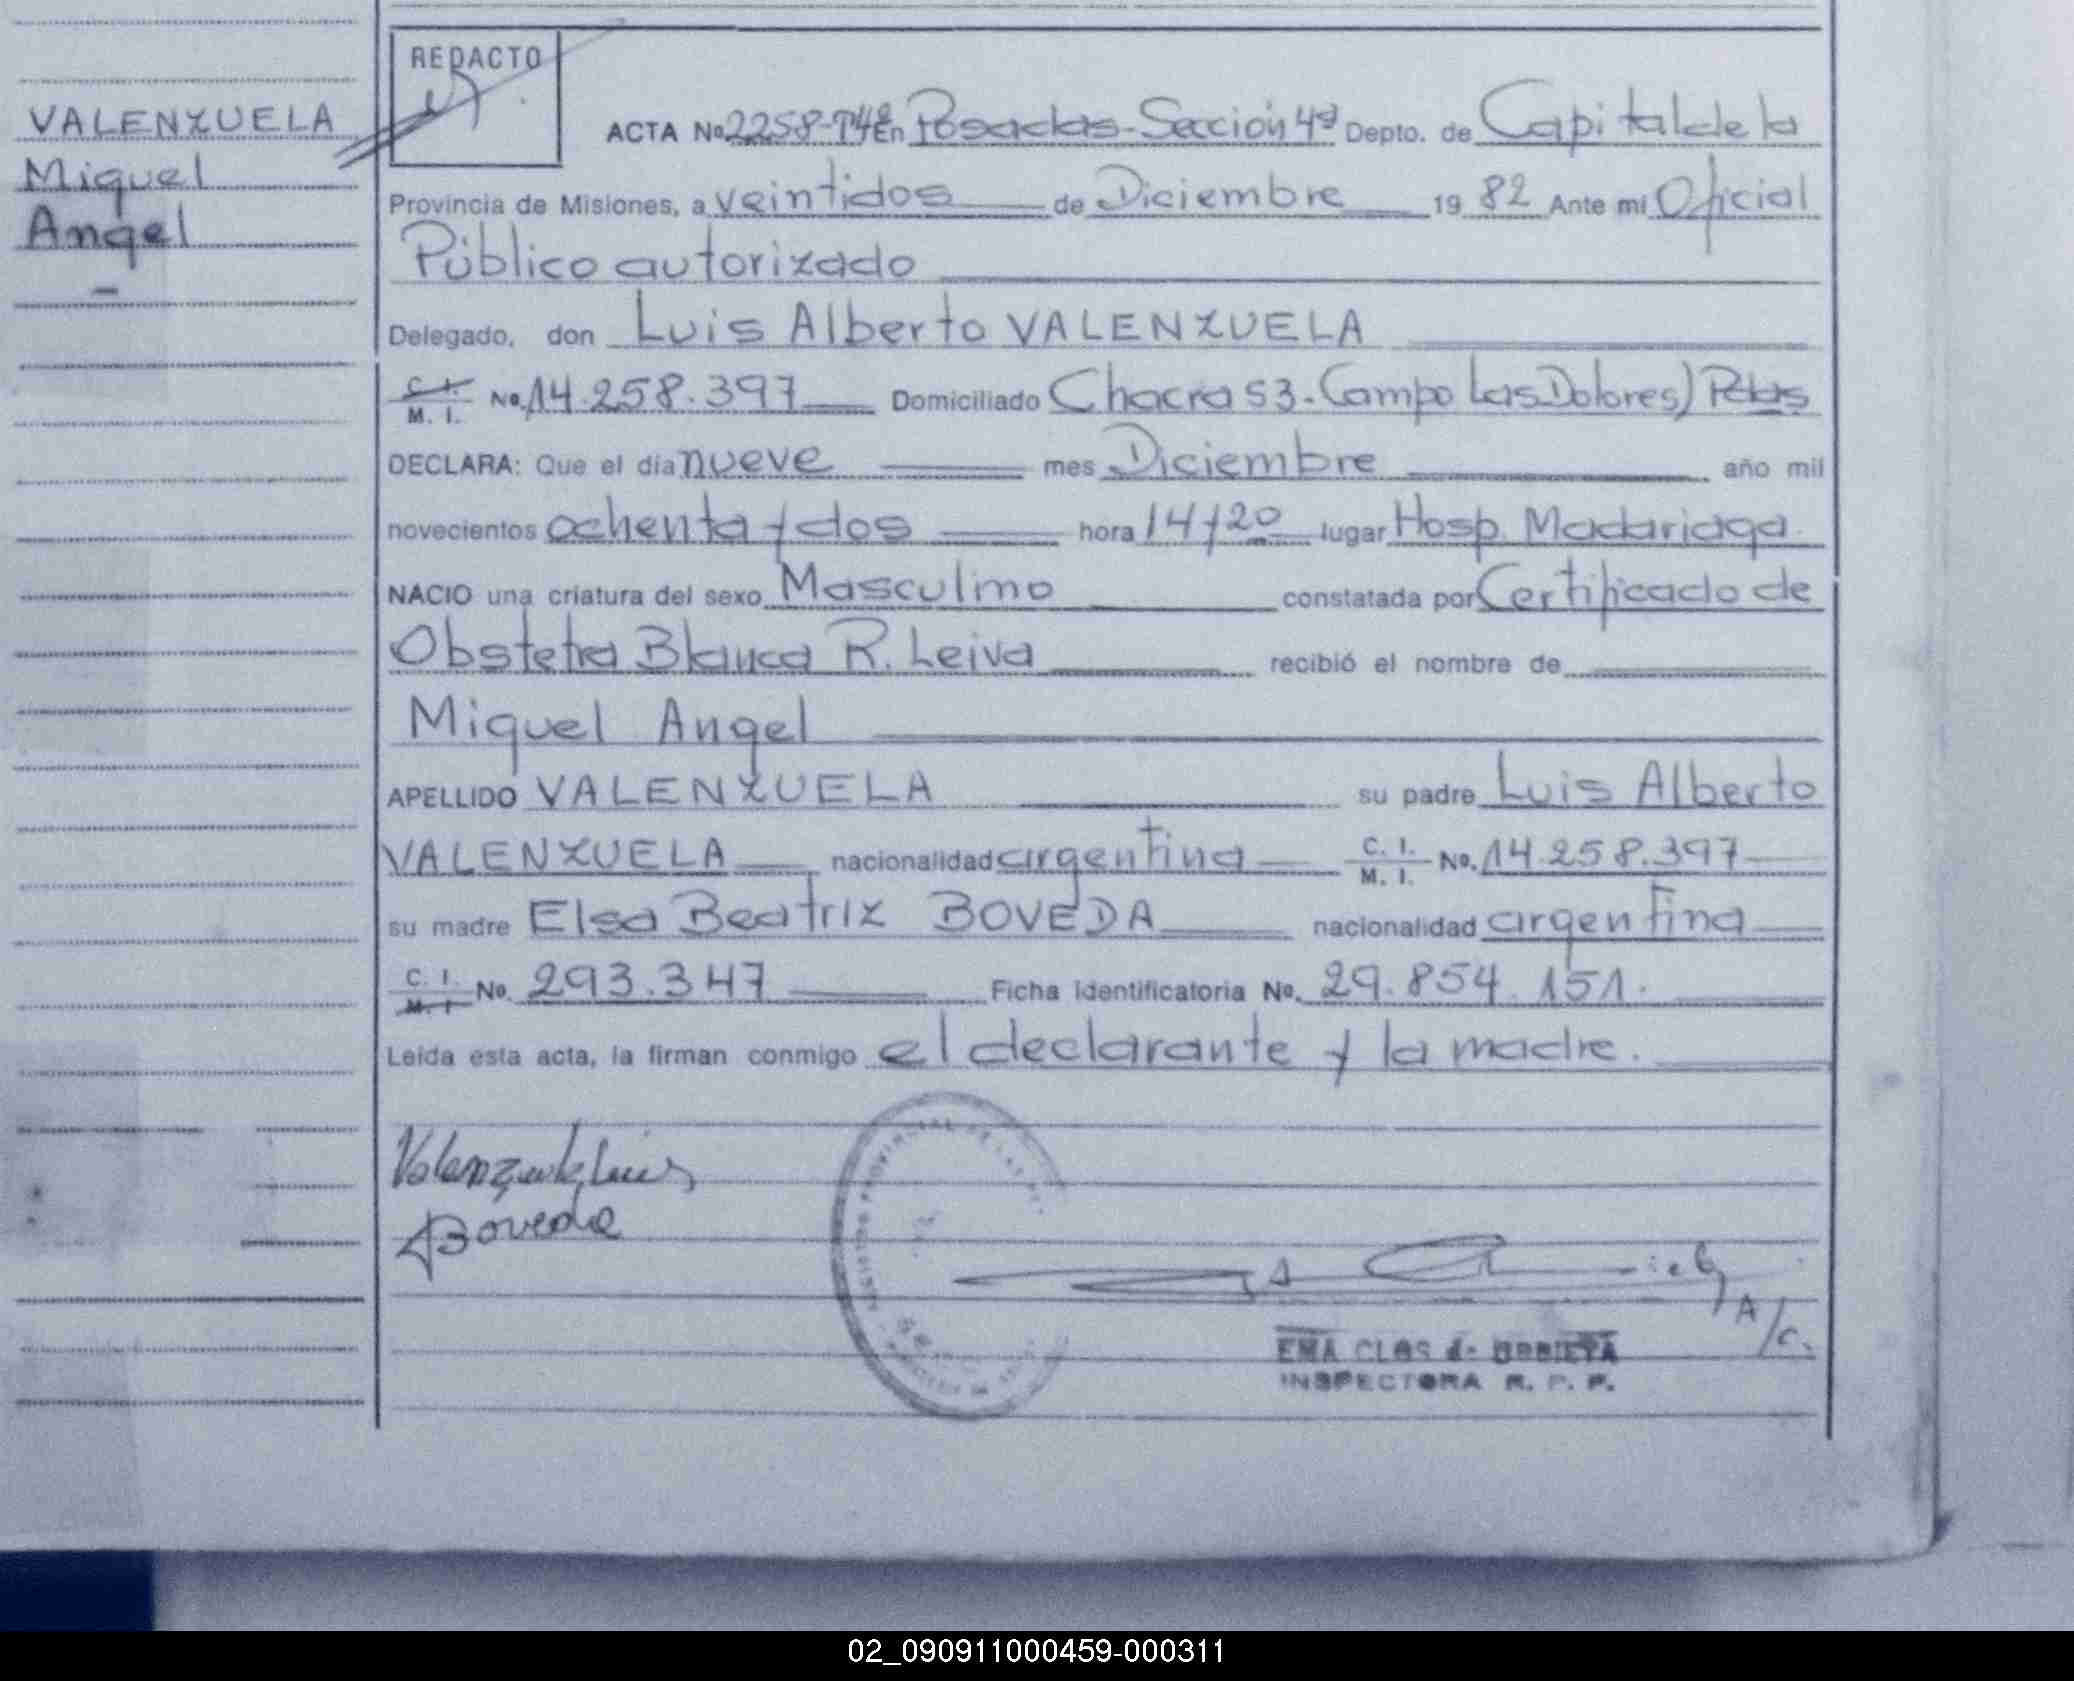 VALENZUELA
Miguel
Angel
-
REDACTO
ACTA No 2258-T4º En Posadas-Sección 4ª Depto. de Capital de la
Provincia de Misiones, a veintidos de Diciembre 19 82 Ante mi Oficial
Público autorizado
Delegado, don Luis Alberto VALENZUELA
C. I. M. I. No. 14.258.397 Domiciliado Chacra 53-Campo Las Dolores) Pdas
DECLARA: Que el día nueve mes Diciembre año mil
novecientos ochenta y dos hora 14y20 lugar Hosp. Madariaga.
NACIO una criatura del sexo Masculino constatada por Certificado de
Obstetra Blanca R. Leiva recibió el nombre de
Miguel Angel
APELLIDO VALENZUELA su padre Luis Alberto
VALENZUELA nacionalidad argentina C. I. M. I. No. 14.258.397
su madre Elsa Beatriz BOVEDA nacionalidad argentina
C. I. M. I. No. 293.347 Ficha Identificatoria No. 29.854.151.
Leída esta acta, la firman conmigo el declarante y la madre.
Valenzuela Luis
Boveda
A/c.
EMA CLOS de URRIETA
INSPECTORA R. P. P.
02_090911000459-000311